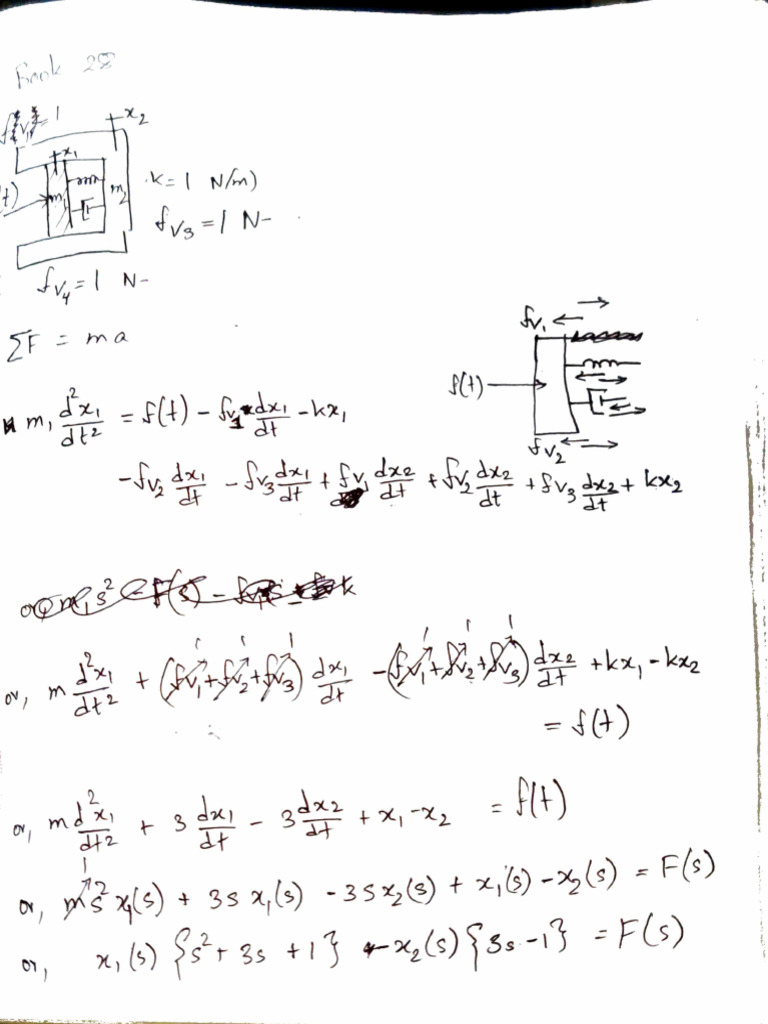 Book 28
x₂
x₁
m₁
m₂
k = 1 N/m)
f_v₃ = 1 N-
f_v₄ = 1 N-
ΣF = ma
f_v₁
f(t)
f_v₂
m₁ d²x₁/dt² = f(t) - f_v₁ dx₁/dt - kx₁
- f_v₂ dx₁/dt - f_v₃ dx₁/dt + f_v₁ dx₂/dt + f_v₂ dx₂/dt + f_v₃ dx₂/dt + kx₂
or, m d²x₁/dt² + (f_v₁ + f_v₂ + f_v₃) dx₁/dt - (f_v₁ + f_v₂ + f_v₃) dx₂/dt + kx₁ - kx₂
= f(t)
or, m d²x₁/dt² + 3 dx₁/dt - 3 dx₂/dt + x₁ - x₂ = f(t)
or, ms² x₁(s) + 3s x₁(s) - 3s x₂(s) + x₁(s) - x₂(s) = F(s)
or, x₁(s) {s² + 3s + 1} - x₂(s) {3s - 1} = F(s)